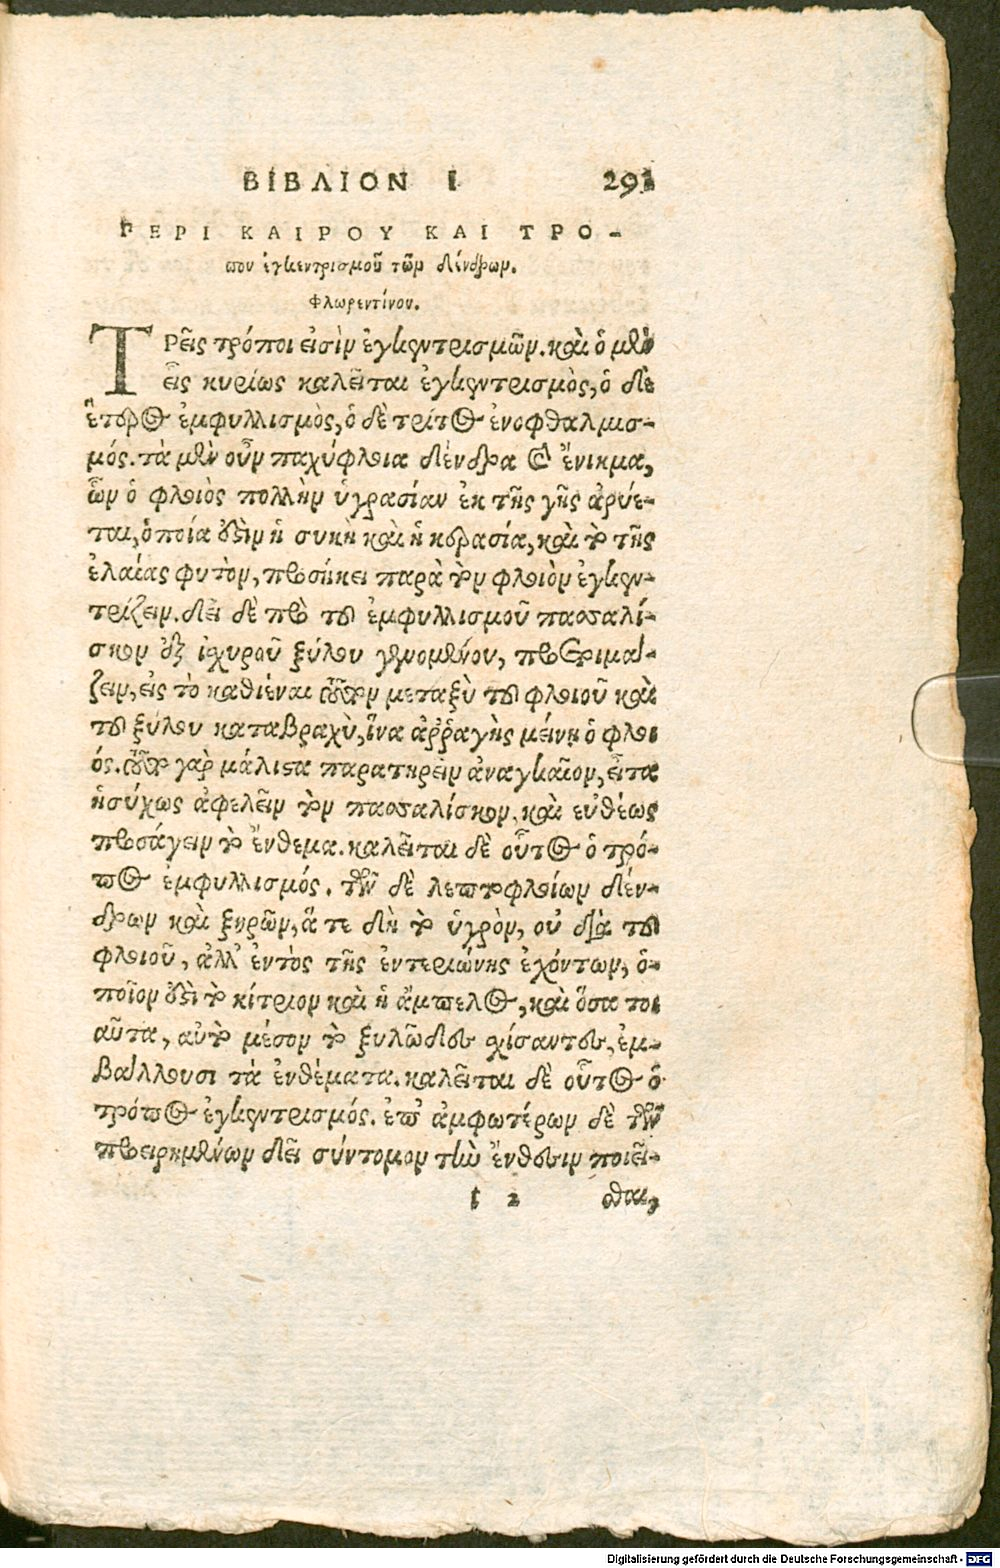 ΒΙΒΛΙΟΝ Ι 291
ΠΕΡΙ ΚΑΙΡΟΥ ΚΑΙ ΤΡΟ-
που ἐγκεντρισμοῦ τῶν δένδρων.
Φλωρεντίνου.
ΤΡεῖς τρόποι εἰσὶν ἐγκεντρισμῶν. καὶ ὁ μὲν
εἷς κυρίως καλεῖται ἐγκεντρισμὸς, ὁ δὲ
ἕτερος ἐμφυλλισμὸς, ὁ δὲ τρίτος ἐνοφθαλμισ-
μός. τὰ μὲν οὖν παχύφλοια δένδρα καὶ ἔνικμα,
ὧν ὁ φλοιὸς πολλὴν ὑγρασίαν ἐκ τῆς γῆς ἀρύε-
ται, ὁποία ἐστὶν ἡ συκῆ καὶ ἡ κερασία, καὶ τὸ τῆς
ἐλαίας φυτὸν, προσήκει παρὰ τὸν φλοιὸν ἐγκεν-
τρίζειν. δεῖ δὲ πρὸ τοῦ ἐμφυλλισμοῦ πασσαλί-
σκον ἐξ ἰσχυροῦ ξύλου γενομένου, προεριμά-
ζειν, εἰς τὸ καθιέναι τοῦτον μεταξὺ τοῦ φλοιοῦ καὶ
τοῦ ξύλου καταβραχὺ, ἵνα ἀῤῥαγὴς μείνῃ ὁ φλοι
ός. τοῦτο γὰρ μάλιστα παρατηρεῖν ἀναγκαῖον, εἶτα
ἡσύχως ἀφελεῖν τὸν πασσαλίσκον, καὶ εὐθέως
προσάγειν τὸ ἔνθεμα. καλεῖται δὲ οὗτος ὁ τρό-
πος ἐμφυλλισμός. τῶν δὲ λεπτοφλοίων δέν-
δρων καὶ ξηρῶν, ἅ τε δὴ τὸ ὑγρὸν, οὐ διὰ τοῦ
φλοιοῦ, ἀλλ' ἐντὸς τῆς ἐντεριώνης ἐχόντων, ὁ-
ποῖον ἐστὶ τὸ κίτριον καὶ ἡ ἄμπελος, καὶ ὅσα τοι
αῦτα, αὐτὸ μέσον τὸ ξυλῶδες σχίσαντες, ἐμ-
βάλλουσι τὰ ἐνθέματα. καλεῖται δὲ οὗτος ὁ
τρόπος ἐγκεντρισμός. ἐπ' ἀμφωτέρων δὲ τῶν
προειρημένων δεῖ σύντομον τὴν ἔνθεσιν ποιεῖ-
Ι 2 σθαι,
Digitalisierung gefördert durch die Deutsche Forschungsgemeinschaft - DFG